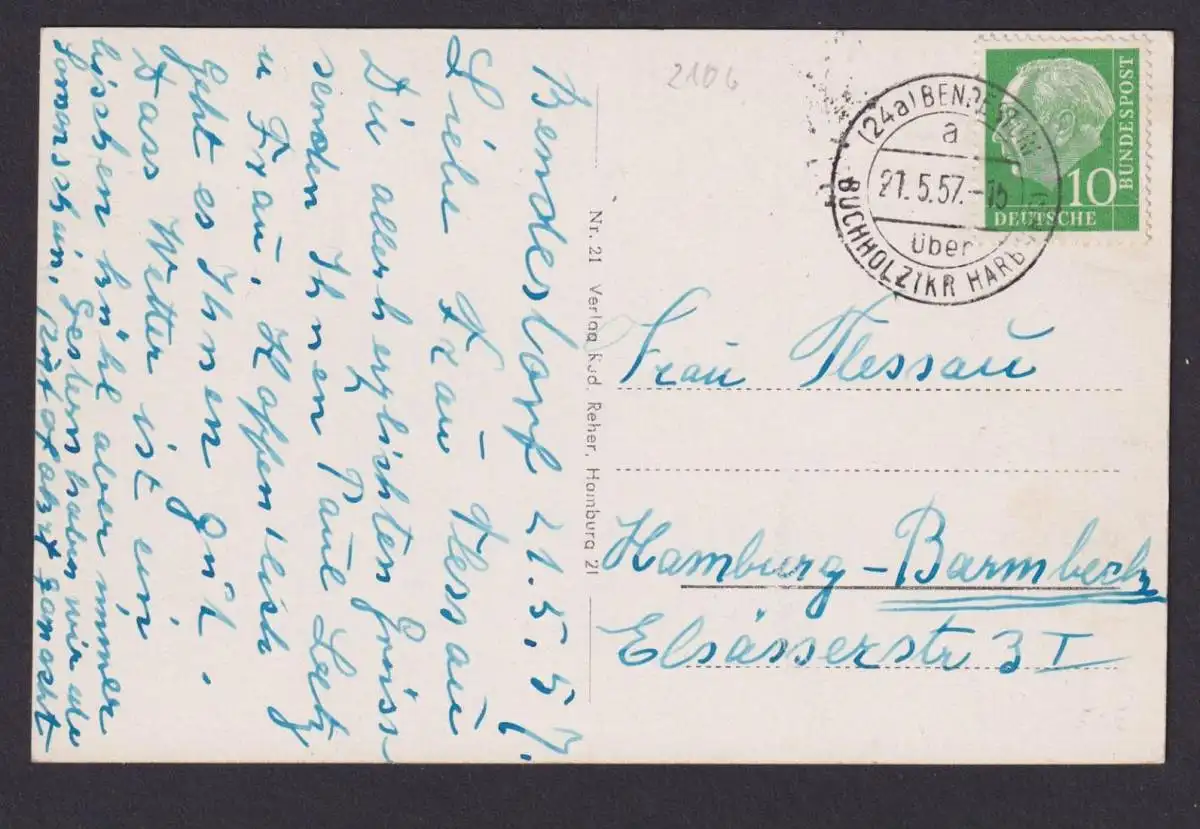 Bendestorf 21.5.57.
Liebe Frau Flessau
Die allerherzlichsten Grüsse
senden Ihnen Paul Lentz
u Frau. Hoffentlich
geht es Ihnen gut.
Dass Wetter ist ein
bischen kühl aber immer
Sonnenschein, Gestern haben wir
gemacht
Nr. 21 Verlag Rud. Reher, Hamburg 21
2106
(24a) BENDESTORF
a
21.5.57.-15
über
BUCHHOLZ (KR HARBURG)
10
DEUTSCHE
BUNDESPOST
Frau Flessau
Hamburg-Barmbeck
Elsässerstr 3 I